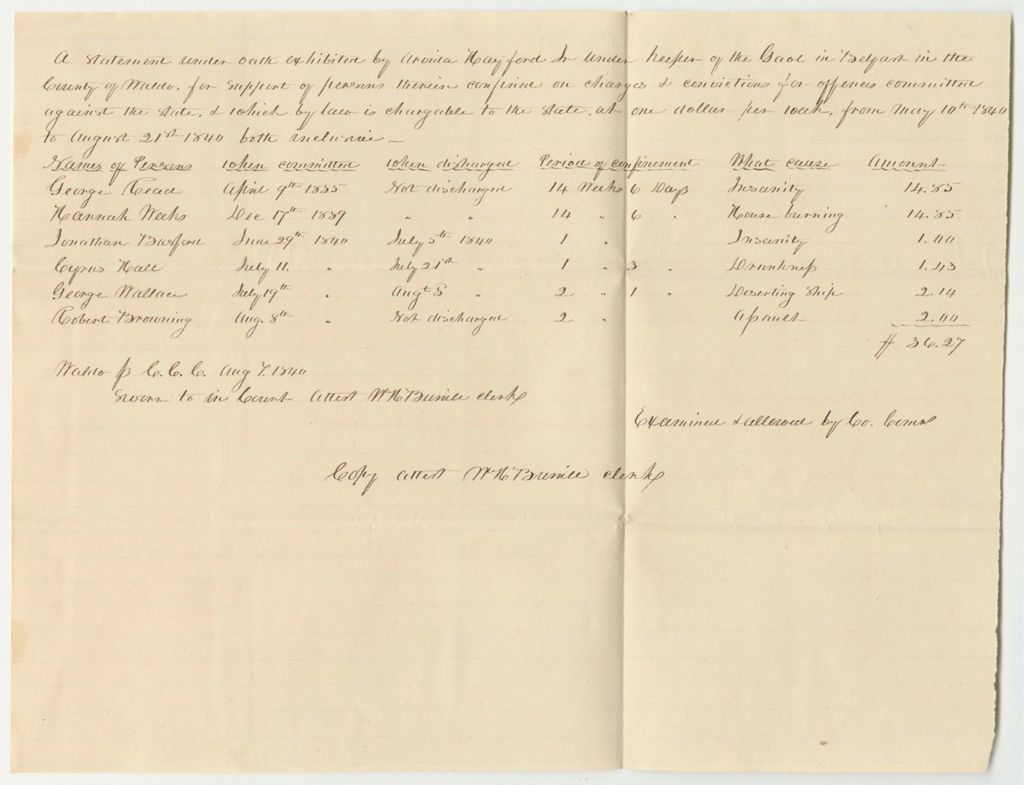 A statement under oath exhibited by Axonia Hayford Jr under keeper of the Gaol in Belfast in the
County of Waldo, for support of persons therein confined on charges & convictions for offences committed
against the state, & which by law is chargable to the state, at one dollar per week, from May 10th 1840
to August 21st 1840 both inclusive —
Names of Persons when committed when discharged Period of confinement What cause Amount
George Read April 9th 1835 Not discharged 14 Weeks 6 Days Insanity 14.85
Hannah Weeks Dec 17th 1839 " " 14 " 6 " House burning 14.85
Jonathan Basford June 29th 1840 July 5th 1840 1 " Insanity 1.00
Cyrus Hall July 11. " July 21st " 1 " 3 " Drunkness 1.43
George Wallace July 19th " Augt 3 " 2 " 1 " Deserting Ship 2.14
Robert Browning Aug. 8th " Not discharged 2 " Assault 2.00
$ 36.27
Waldo ss C. C. C. Aug T. 1840
Sworn to in Court attest clerk
Examined & allowed by Co. Coms
Copy attest clerk